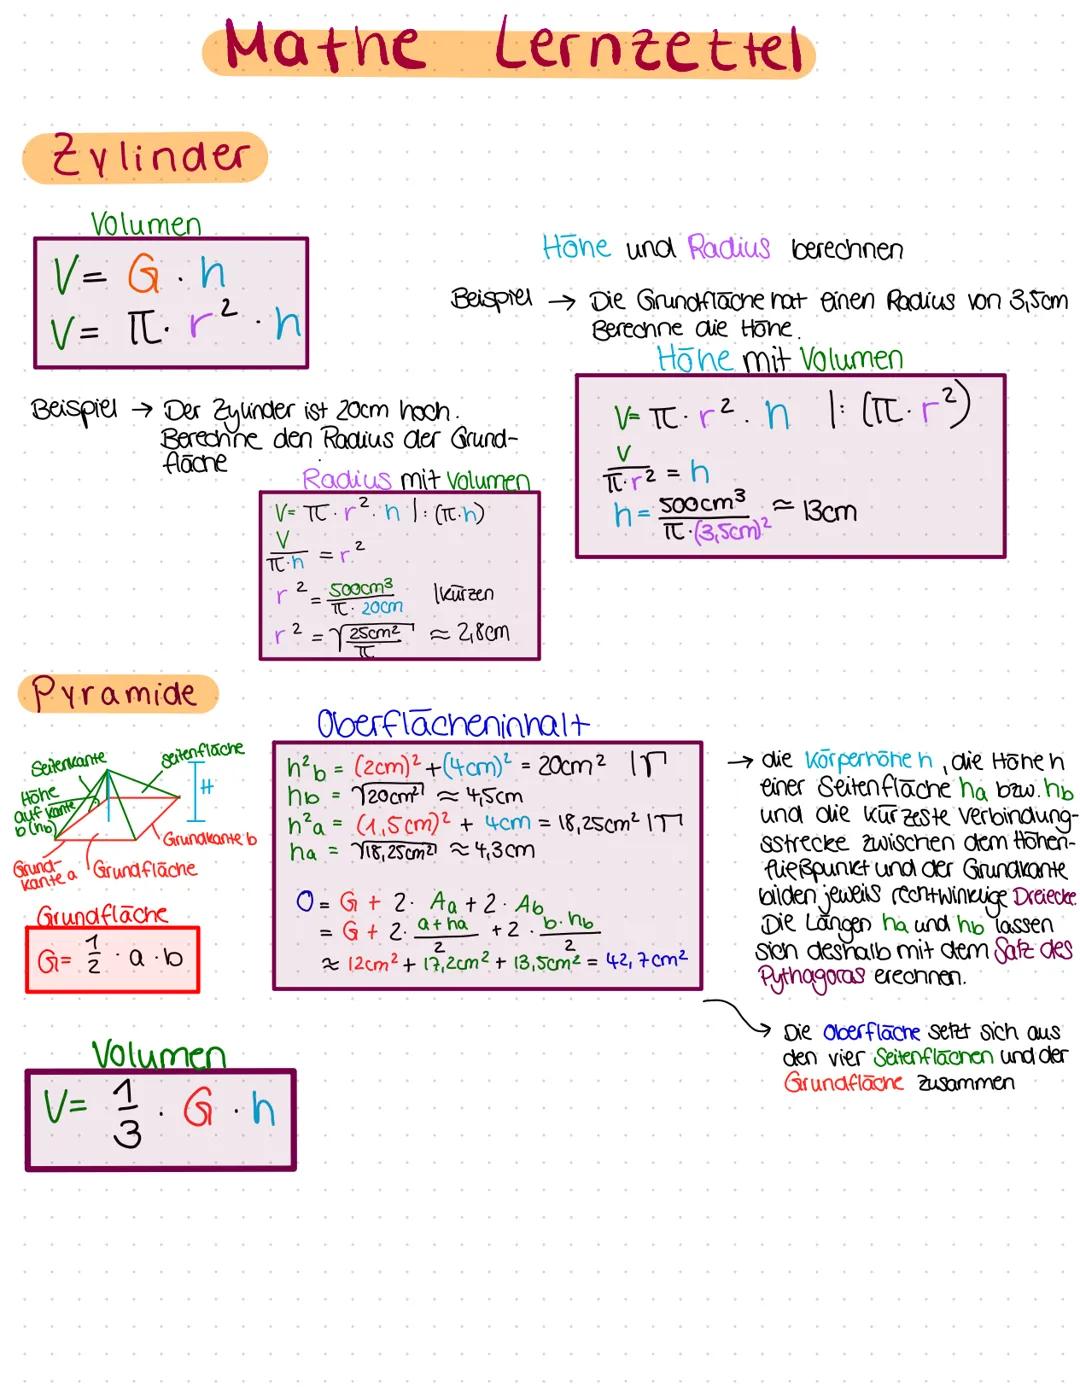 Mathe Lernzettel
Zylinder
Volumen
V= G · h
V= π · r² · h
Beispiel → Der Zylinder ist 20cm hoch.
Berechne den Radius der Grund-
fläche
Radius mit Volumen
V= π · r² · h |: (π·h)
V/(π·h) = r²
r² = 500cm³/(π · 20cm) |kürzen
r² = √(25cm²/π) ≈ 2,8cm
Höhe und Radius berechnen
Beispiel → Die Grundfläche hat einen Radius von 3,5cm
Berechne die Höhe.
Höhe mit Volumen
V= π · r² · h |: (π · r²)
V/(π·r²) = h
h = 500cm³/(π·(3,5cm)²) ≈ 13cm
Pyramide
Seitenkante
Seitenfläche
Höhe
auf Kante
b (hb)
H
Grundkante b
Grund-
kante a
Grundfläche
Grundfläche
G= 1/2 · a · b
Volumen
V= 1/3 · G · h
Oberflächeninhalt
h²b = (2cm)² + (4cm)² = 20cm² |√
hb = √20cm² ≈ 4,5cm
h²a = (1,5cm)² + 4cm = 18,25cm² |√
ha = √18,25cm² ≈ 4,3cm
O = G + 2 · Aa + 2 · Ab
= G + 2 · (a+ha)/2 + 2 · (b·hb)/2
≈ 12cm² + 17,2cm² + 13,5cm² = 42,7cm²
→ die Körperhöhe h, die Höhe h
einer Seitenfläche ha bzw. hb
und die kürzeste Verbindung-
sstrecke zwischen dem Höhen-
fließpunkt und der Grundkante
bilden jeweils rechtwinklige Dreiecke
Die Längen ha und hb lassen
sich deshalb mit dem Satz des
Pythagoras erechnen.
→ Die Oberfläche setzt sich aus
den vier Seitenflächen und der
Grundfläche zusammen